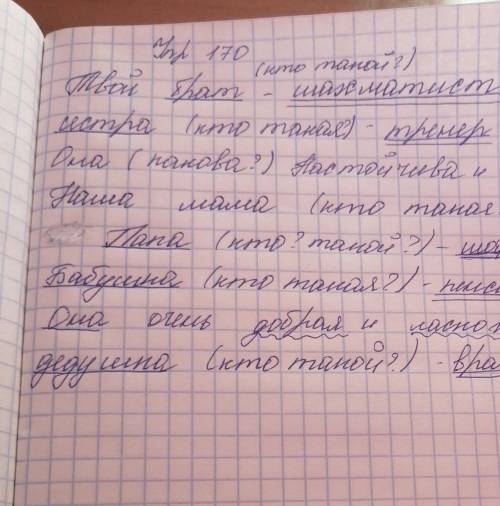 Упр 170
(кто такой?)
Твой брат - шахматист
сестра (кто такая) - тренер
Она (какова?) Настойчива и
Наша мама (кто такая
Папа (кто? такой?) -
Бабушка (кто такая?) - пенси
Она очень добрая и ласко
дедушка (кто такой?) - вра